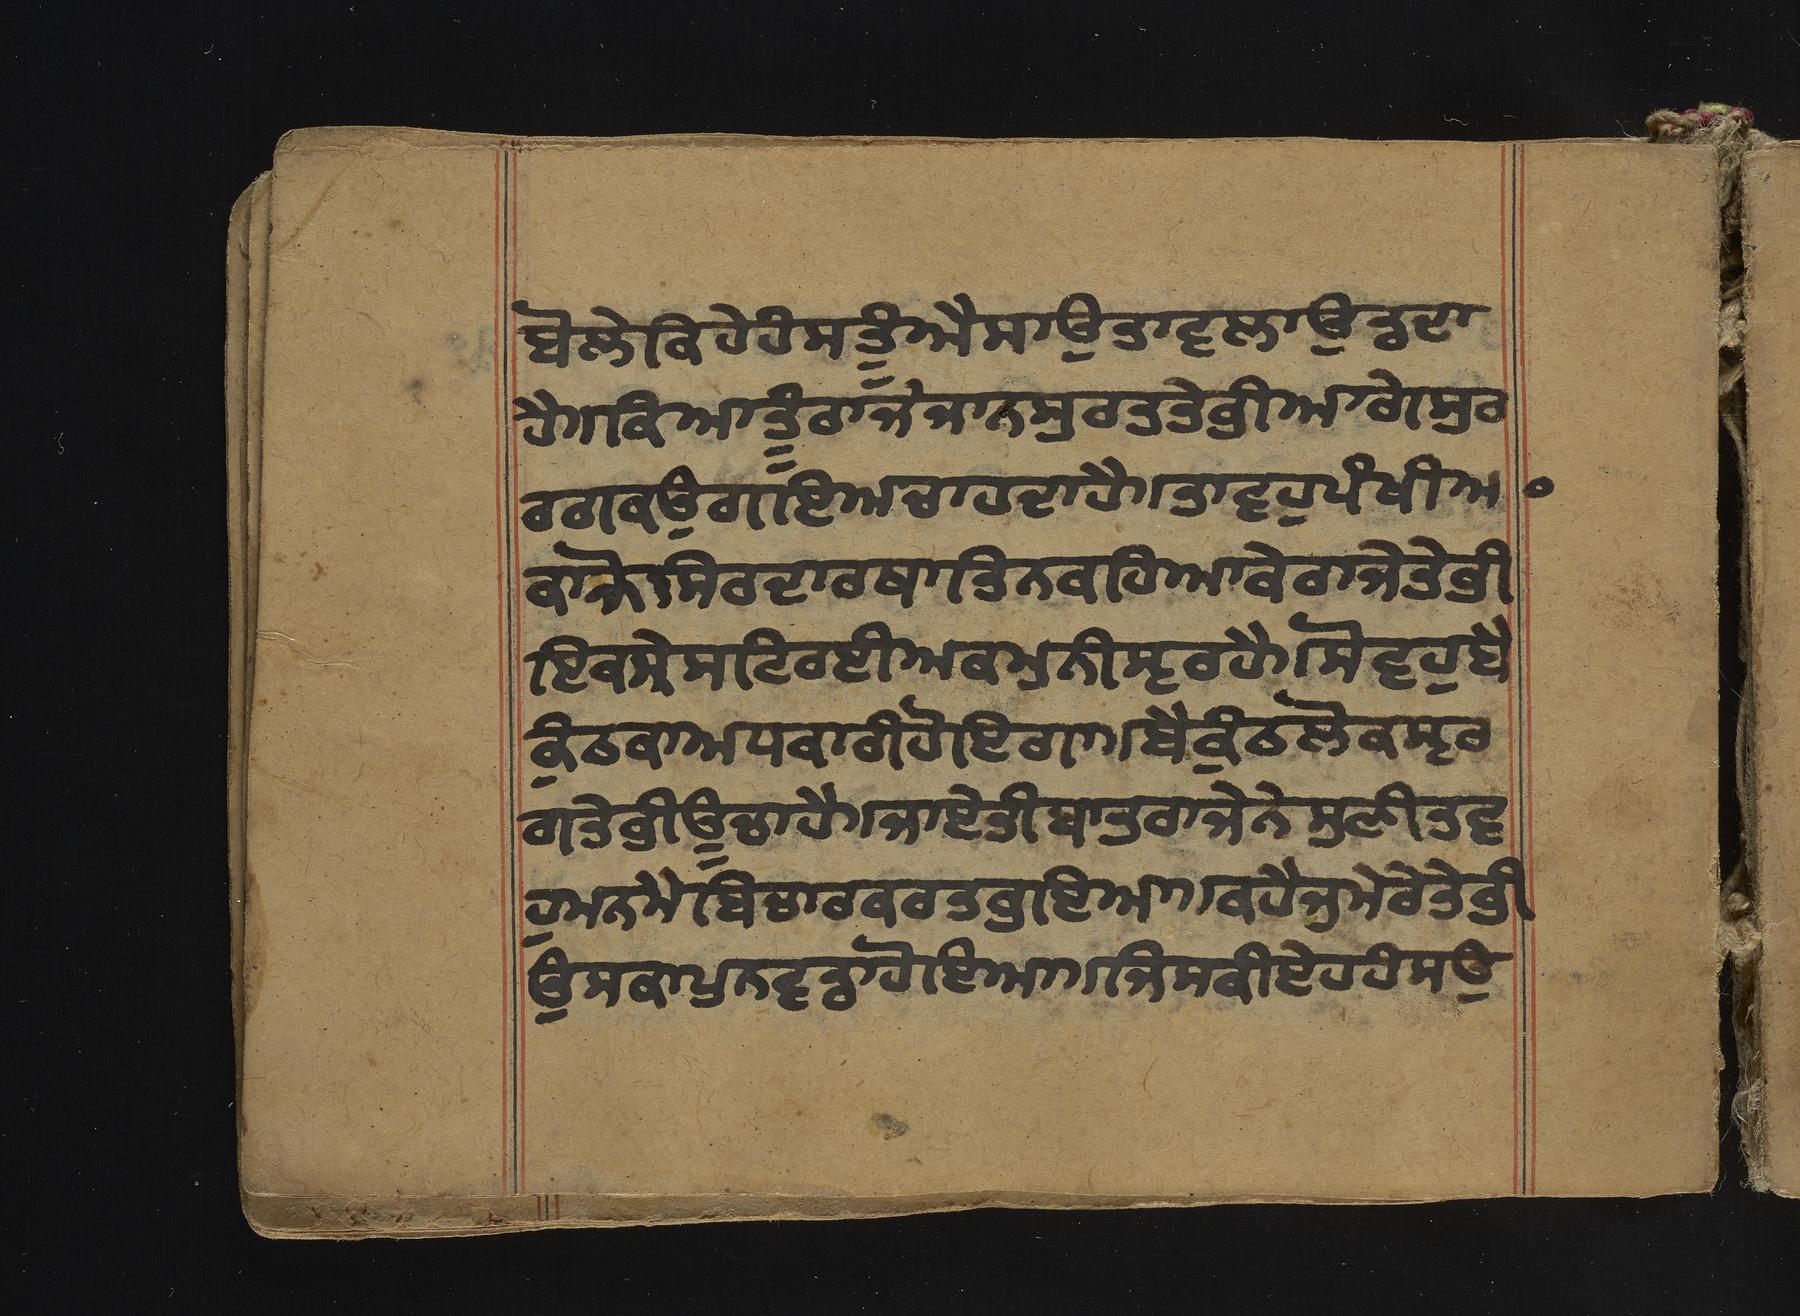 ਬੋਲੇ ਕਿ ਹੇ ਹੰਸ ਤੂੰ ਐਸਾ ਉਤਾਵਲਾ ਉਡਦਾ
ਹੈ। ਕਿਆ ਤੂੰ ਰਾਜੇ ਜਾਨ ਸੁਰਤ ਤੇ ਭੀ ਆਗੇ ਸੁਰ
ਰਗ ਕਉ ਗਇਆ ਚਾਹਦਾ ਹੈ। ਤਾ ਵਹੁ ਪੰਖੀਆ
ਕਾ ਜੋ ਸਿਰਦਾਰ ਥਾ ਤਿਨ ਕਹਿਆ ਕੇ ਰਾਜੇ ਤੇ ਭੀ
ਇਕ ਸ੍ਰੇਸਟਿ ਰਈਅਕ ਮੁਨੀਸ੍ਵਰ ਹੈ। ਸੋ ਵਹੁ ਬੈ
ਕੁੰਠ ਕਾ ਅਧਕਾਰੀ ਹੋਇਗਾ। ਬੈਕੁੰਠ ਲੋਕ ਸ੍ਵਰ
ਗ ਤੇ ਭੀ ਊਚਾ ਹੈ। ਜਾ ਏਤੀ ਬਾਤ ਰਾਜੇ ਨੇ ਸੁਣੀ ਤ ਵ
ਹੁ ਮਨ ਮੇ ਬਿਚਾਰ ਕਰਤ ਭਇਆ। ਕਹੈ ਜੁ ਮੇਰੇ ਤੇ ਭੀ
ਉਸਕਾ ਪੁਨ ਵਡਾ ਹੋਇਆ। ਜਿਸਕੀ ਏਹ ਹੰਸ ਉ